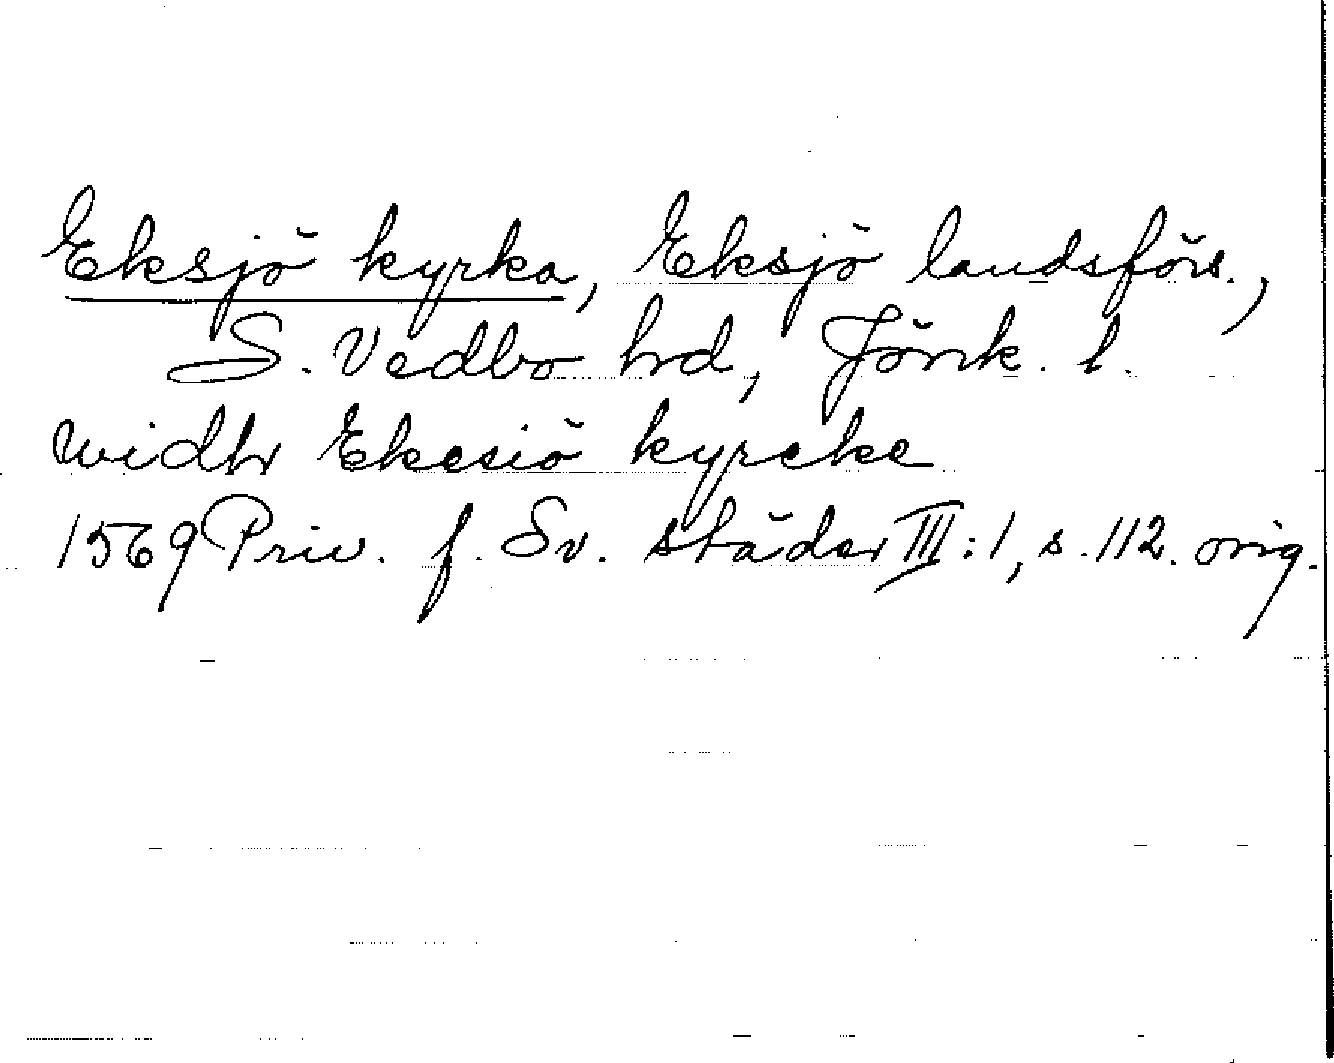 Eksjö kyrka, Eksjö landsförs.,
S. Vedbo hrd, Jönk. l.
widhr Ekesiö kyrcke
1569 Priv. f. Sv. städer III:1, s. 112. orig.